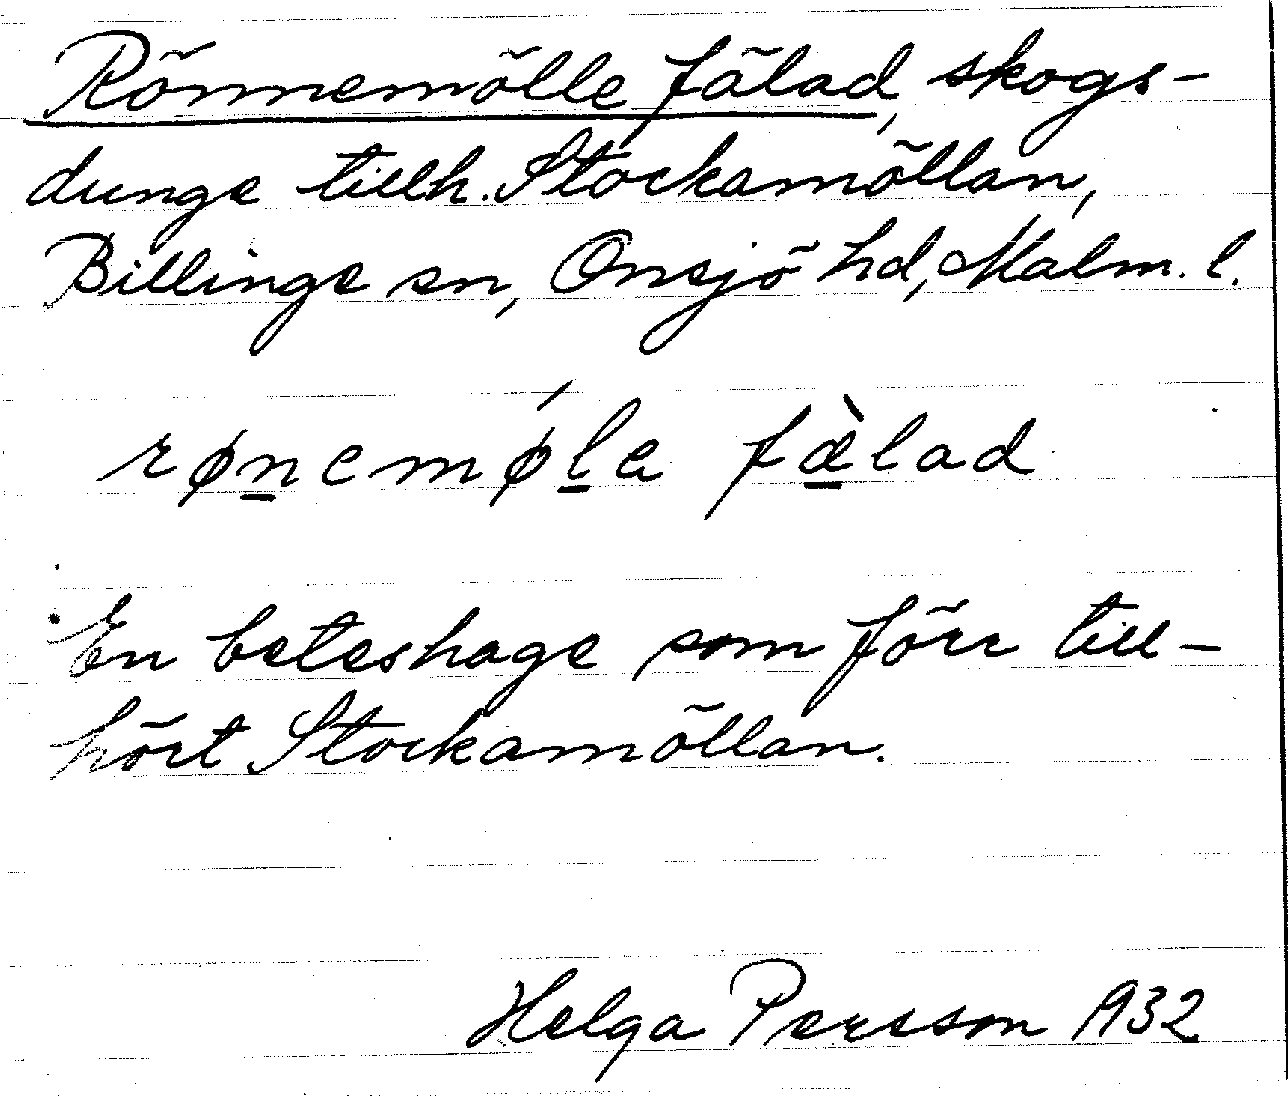 Rönnemölle fälad, skogs-
dunge tillh. Stockamöllan,
Billinge sn, Onsjö hd, Malm. l.
røn̲emǿl̲e fæ̲̀lad
En beteshage som förr till-
hört Stockamöllan.
Helga Persson 1932